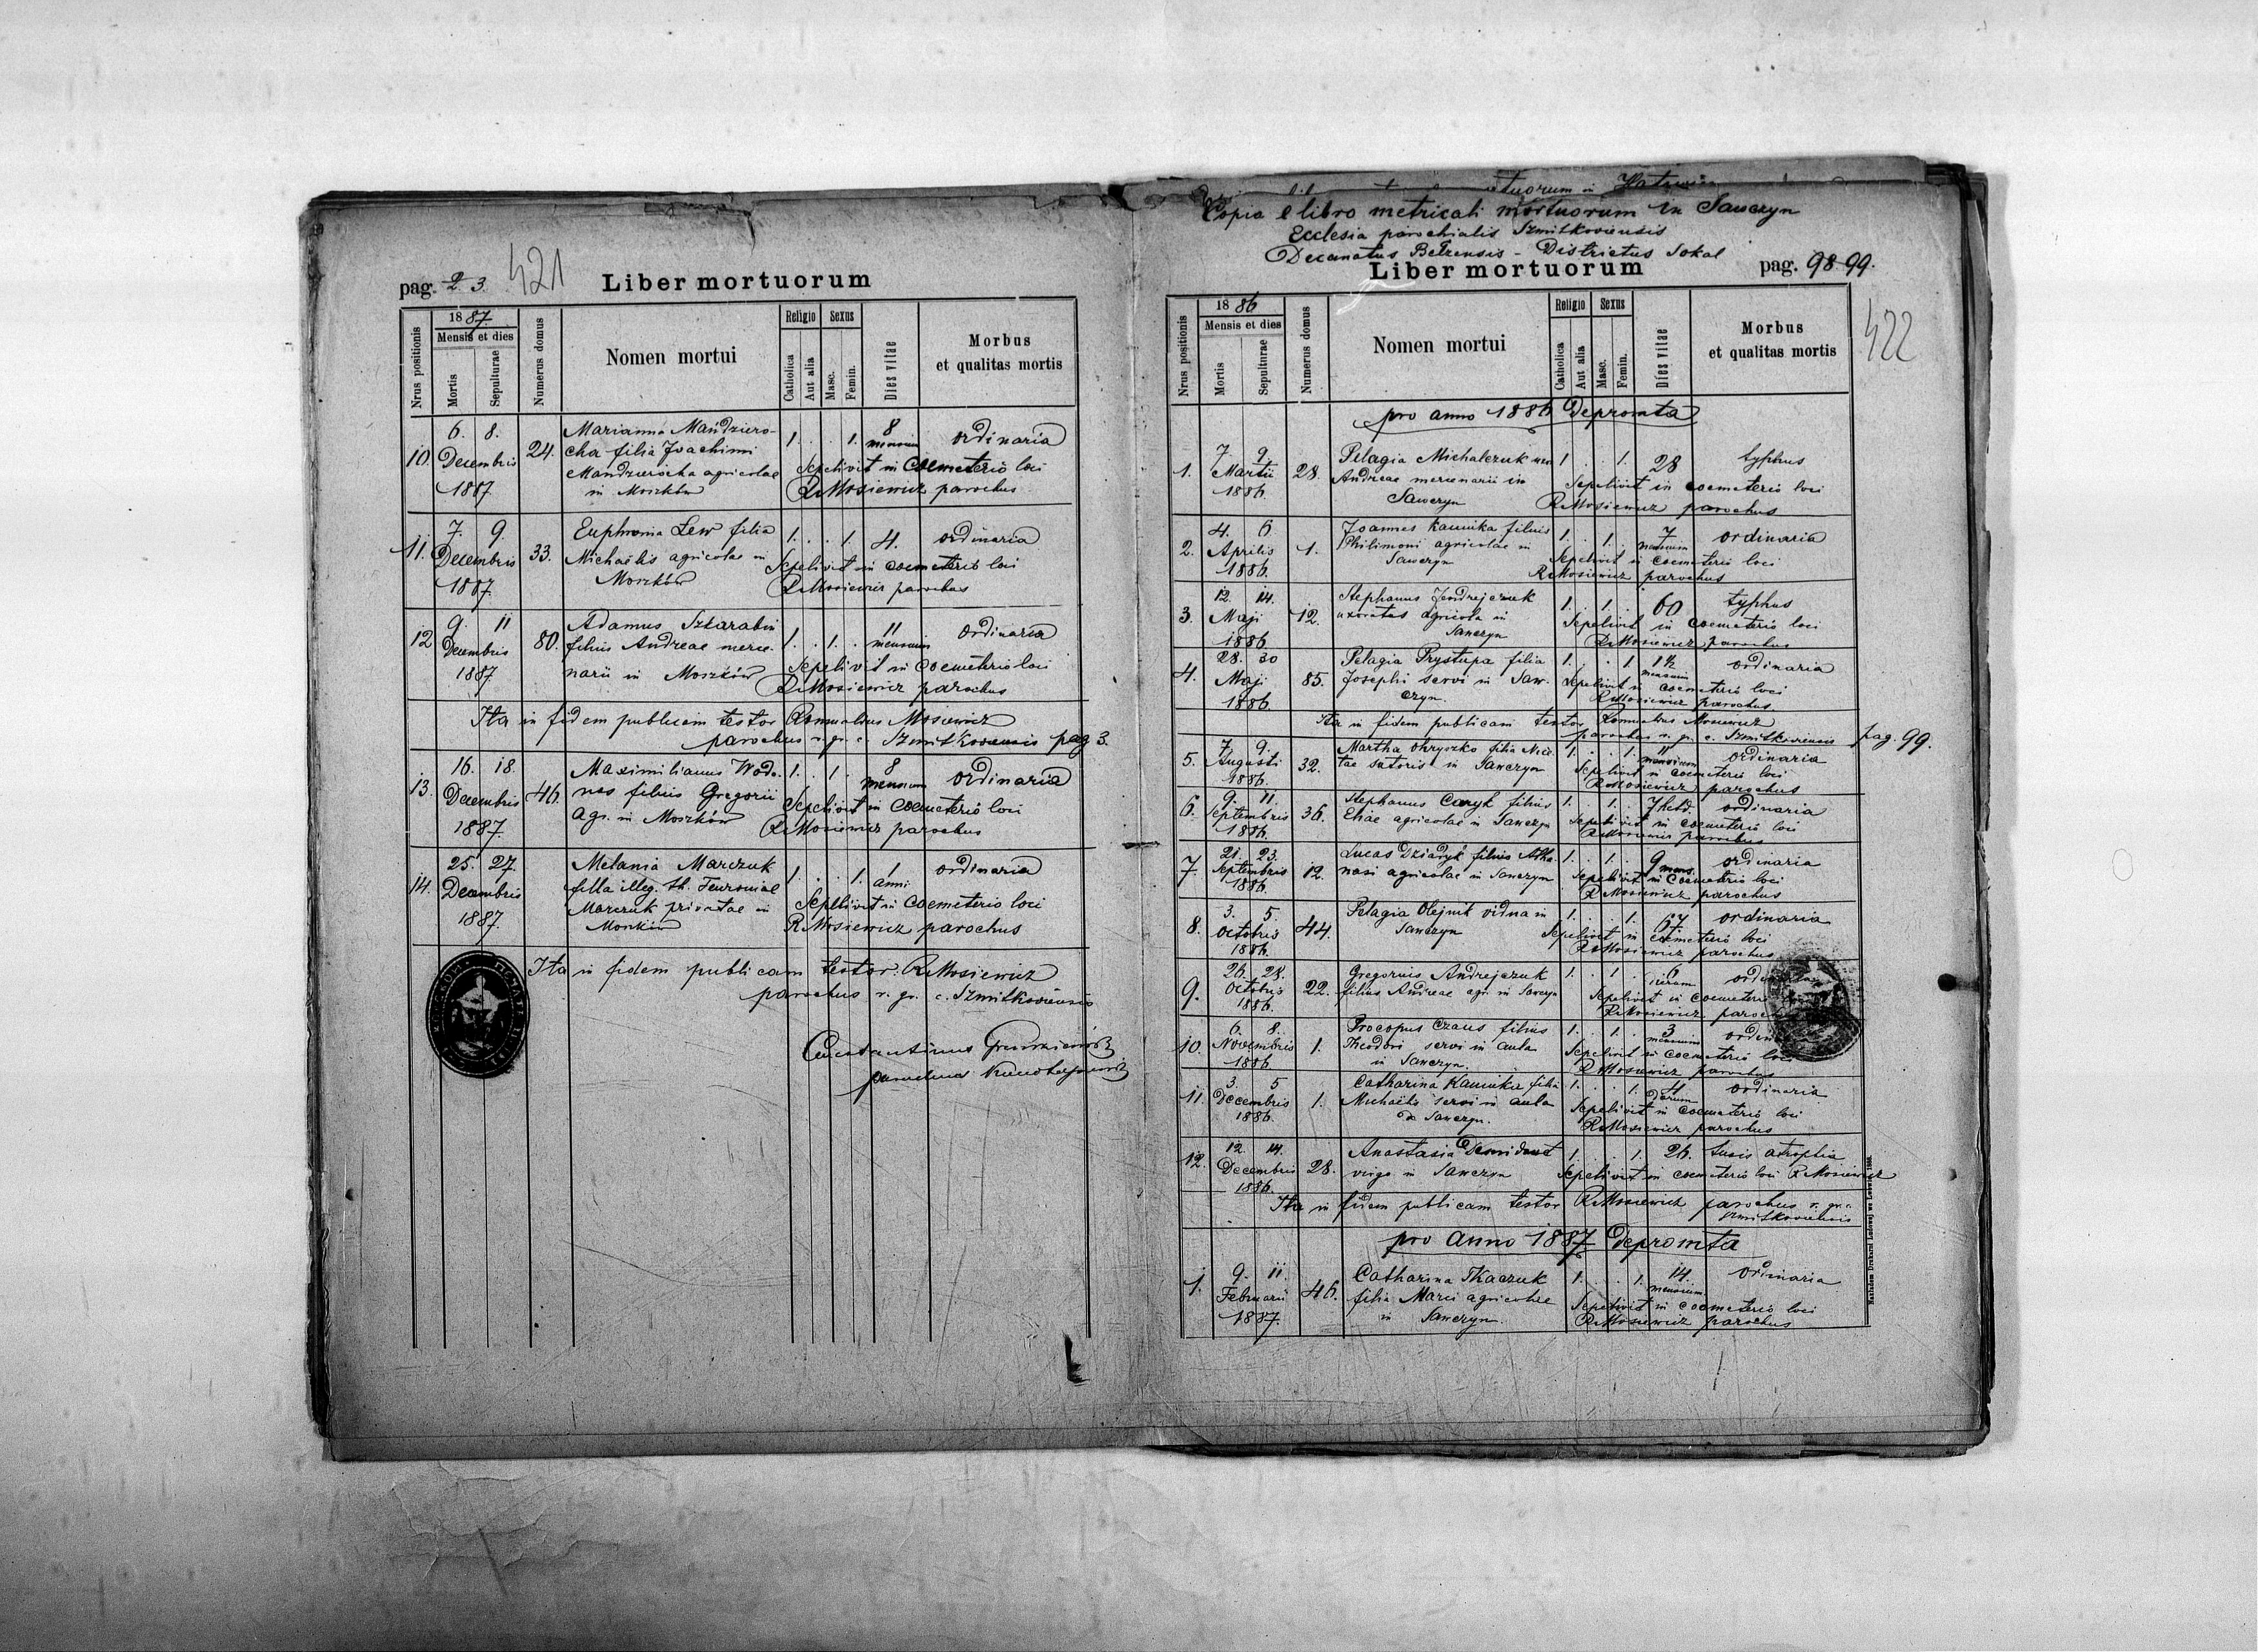 pag. 2. 3. 421 Liber mortuorum
Nrus positionis
1887
Mensis et dies
Mortis
Sepulturae
Numerus domus
Nomen mortui
Religio
Catholica
Aut alia
Sexus
Masc.
Femin.
Dies vitae
Morbus
et qualitas mortis
10. 6. 8. Decembris 1887 24.
Marianna Mandziero-
cha filia Joachimi
Mandzierocha agricolae
in Moszków
1. . . 1. 8 mensium ordinaria
Sepelivit in coemeterio loci
R Mosiewicz parochus
11. 7. 9. Decembris 1887. 33.
Euphronia Lew filia
Michaëlis agricolae in
Moszków
1. . . 1. 4. ordinaria
Sepelivit in coemeterio loci
R Mosiewicz parochus
12 9. 11 Decembris 1887 80.
Adamus Szkarabin
filius Andreae merce-
narii in Moszków
1. . 1. . 11 mensium ordinaria
Sepelivit in coemeterio loci
R Mosiewicz parochus
Ita in fidem publicam testor Romualdus Mosiewicz
parochus r. gr. c. Szmitkoviensis pag 3.
13. 16. 18. Decembris 1887. 46.
Maximilianus Wodo-
nos filius Gregorii
agr. in Moszków
1. . 1. . 8 mensium ordinaria
Sepelivit in coemeterio loci
R Mosiewicz parochus
14. 25. 27. Decembris 1887.
Melania Marczuk
filla illeg. th. Fewroniae
Marczuk privatae in
Moszków
1. . . 1. 1 anni ordinaria
Sepelivit in coemeterio loci
R Mosiewicz parochus
Ita in fidem publicam testor R Mosiewicz
parochus r. gr. c. Szmitkoviensis
Constantinus
parochus
Copia e libro metricali mortuorum in Sawczyn
Ecclesia parochialis Szmitkoviensis
Decanatus Belzensis - Districtus Sokal
Liber mortuorum pag. 98 99.
422
Nrus positionis
1886
Mensis et dies
Mortis
Sepulturae
Numerus domus
Nomen mortui
Religio
Catholica
Aut alia
Sexus
Masc.
Femin.
Dies vitae
Morbus
et qualitas mortis
pro anno 1886 depromta
1. 7 9. Martii 1886 28.
Pelagia Michalczuk uxor
Andreae mercenarii in
Sawczyn
1 . . 1. 28 typhus
Sepelivit in coemeterio loci
R Mosiewicz parochus
2. 4. 6 Aprilis 1886. 1.
Joannes Kaminka filius
Philimoni agricolae in
Sawczyn
1. . 1. . 7 mensium ordinaria
Sepelivit in coemeterio loci
R Mosiewicz parochus
3. 12. 14. Maji 1886 12.
Stephanus Jendrejczuk
uxoratus agricola in
Sawczyn
1. . 1. . 60 typhus
Sepelivit in coemeterio loci
R Mosiewicz parochus
4. 28. 30 Maji 1886 85.
Pelagia Prystupa filia
Josephi servi in Saw-
czyn.
1. . . 1 1 1/2 mensium ordinaria
Sepelivit in coemeterio loci
R Mosiewicz parochus
Ita in fidem publicam testor Romualdus Mosiewicz
parochus r. gr. c. Szmitkoviensis pag. 99.
5. 7 9. Augusti 1886 32.
Martha Ohryzko filia Nice-
tae sutoris in Sawczyn
1. . . 1. 11 mensium ordinaria
Sepelivit in coemeterio loci
R Mosiewicz parochus
6. 9. 11. Septembris 1886. 36.
Stephanus Caryk filius
Eliae agricolae in Sawczyn
1. . 1. . 7 hebd. ordinaria
Sepelivit in coemeterio loci
R Mosiewicz parochus
7. 21. 23. Septembris 1886 12.
Lucas Dziadyk filius Atha-
nasi agricolae in Sawczyn
1. . 1. . 9 mens. ordinaria
Sepelivit in coemeterio loci
R Mosiewicz parochus
8. 3. 5. Octobris 1886. 44.
Pelagia Olejnik vidua in
Sawczyn
1. . . 1. 67. ordinaria
Sepelivit in coemeterio loci
R Mosiewicz parochus
9. 26. 28. Octobris 1886. 22.
Gregorius Andrejczuk
filius Andreae agr. in Sawczyn
1. . 1 . dierum
Sepelivit in coemeterio
R Mosiewicz
10. 6. 8. Novembris 1886 1.
Procopus Czaus filius
Theodori servi in aula
in Sawczyn.
1. . 1. . 3 mensium
Sepelivit in coemeterio loci
R Mosiewicz parochus
11. 3. 5 Decembris 1886. 1.
Catharina Kaminka filia
Michaëlis servi in aula
de Sawczyn.
1. . . 1. 4 dierum ordinaria
Sepelivit in coemeterio loci
R Mosiewicz parochus
12. 12. 14. Decembris 1886. 28.
Anastasia
virgo in Sawczyn
1. . . 1. 26. tusis atrophia
Sepelivit in coemeterio loci R Mosiewicz
Ita in fidem publicam testor R Mosiewicz parochus r. gr. c.
Szmitkoviensis
pro anno 1887 depromta
1. 9. 11. Februarii 1887. 46.
Catharina Tkaczuk
filia Marci agricolae
in Sawczyn.
1. . . 1. 14. mensium ordinaria
Sepelivit in coemeterio loci
R Mosiewicz parochus